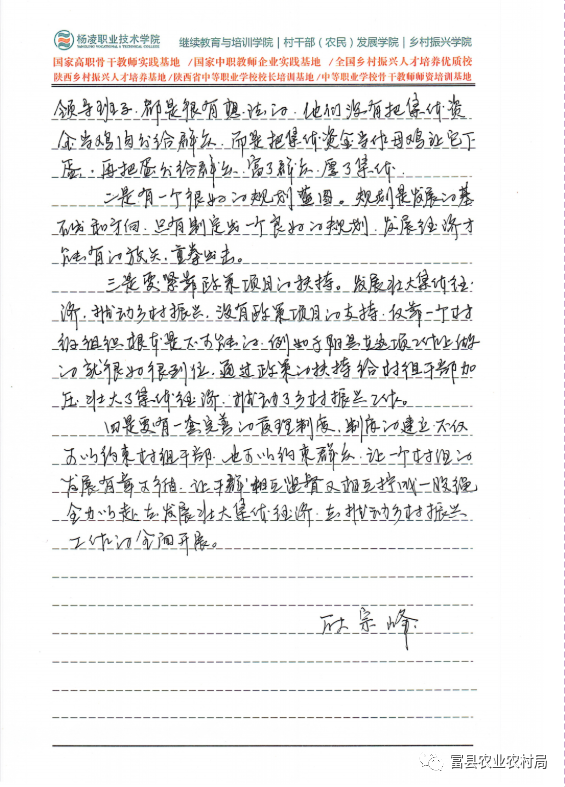 杨凌职业技术学院
YANGLING VOCATIONAL & TECHNICAL COLLEGE
继续教育与培训学院|村干部（农民）发展学院|乡村振兴学院
国家高职骨干教师实践基地 /国家中职教师企业实践基地 /全国乡村振兴人才培养优质校
陕西乡村振兴人才培养基地/陕西省中等职业学校校长培训基地/中等职业学校骨干教师师资培训基地
领导班子，都是很有想法的，他们没有把集体资
金当鸡肉分给群众，而是把集体资金当作母鸡让它下
蛋，再把蛋分给群众，富了群众，厚了集体。
二是有一个很好的规划蓝图。规划是发展的基
础和方向，只有制定出一个良好的规划，发展经济才
能有的放矢，重拳出击。
三是要紧靠政策项目的扶持。发展壮大集体经
济，推动乡村振兴，没有政策项目的支持，仅靠一个村
级组织根本是不可能的，例如子朝县在这项工作上做
的就很好很到位，通过政策的扶持给村组干部加
压，壮大了集体经济，推动了乡村振兴工作。
四是要有一套完善的管理制度，制度的建立不仅
可以约束村组干部，也可以约束群众，让一个村组的
发展有章可循，让干群相互监督又相互拧成一股绳
全力以赴在发展壮大集体经济，在推动乡村振兴
工作的全面开展。
宗峰
富县农业农村局